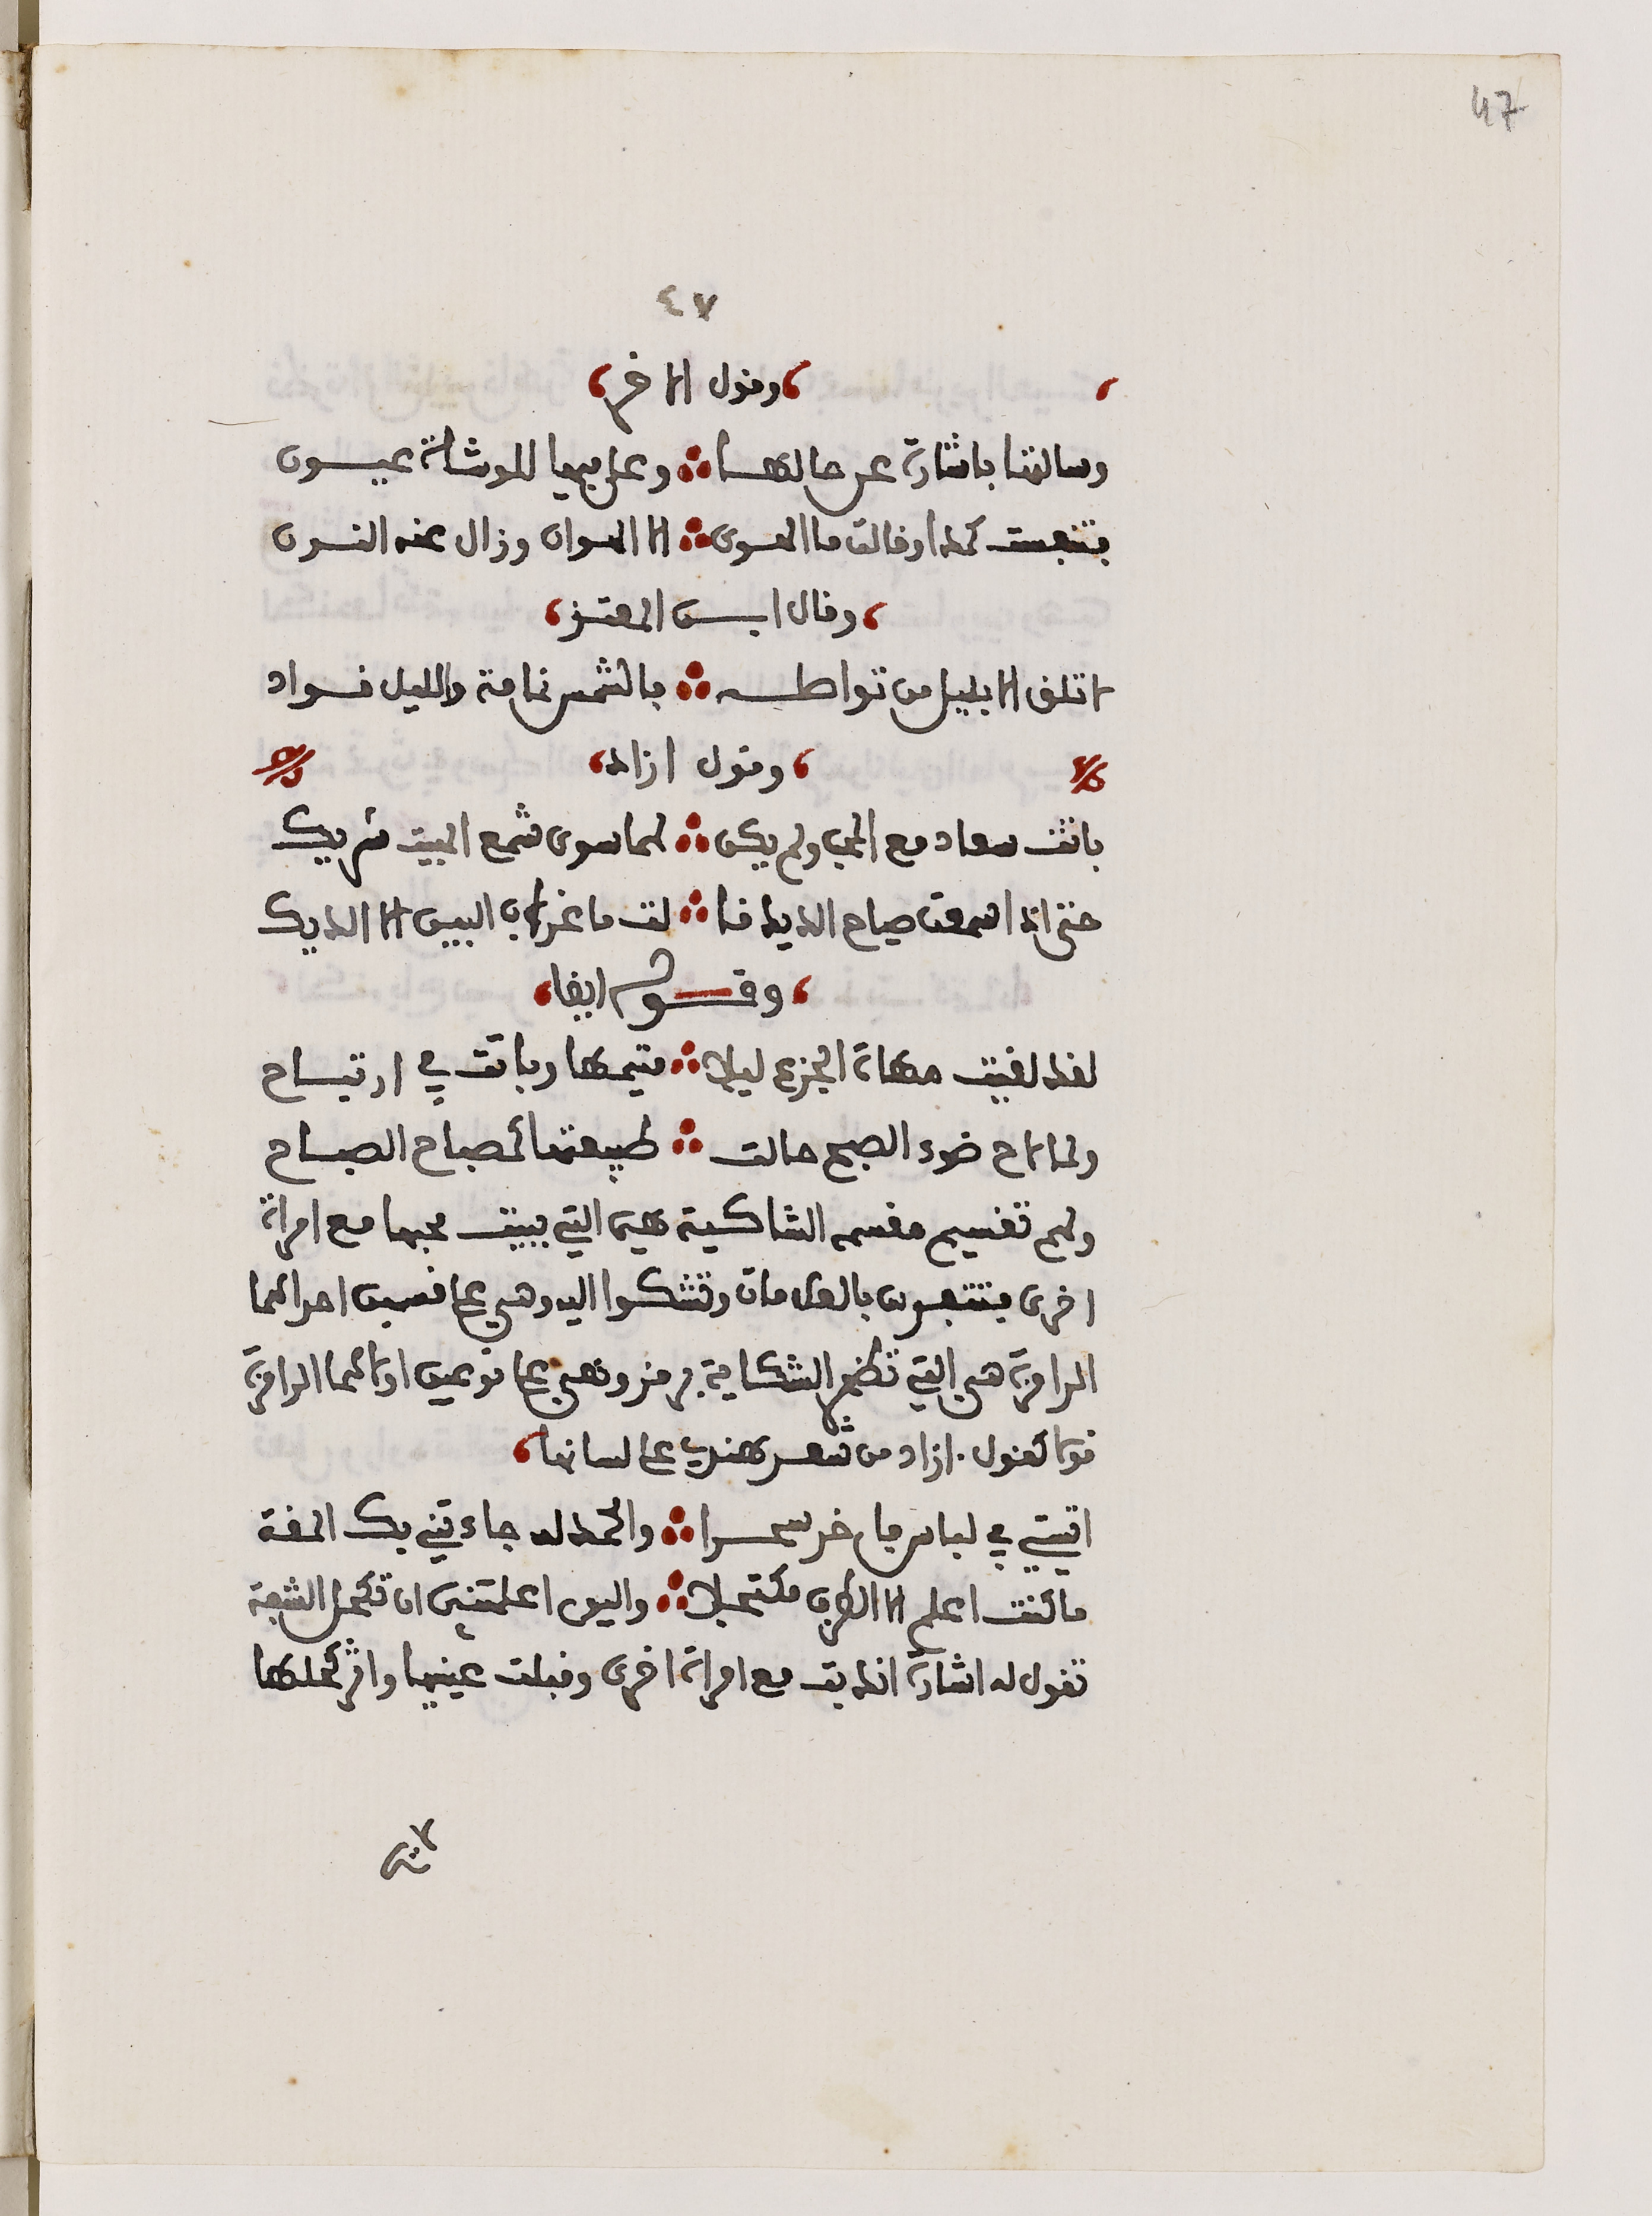 47
٤٧
وقول الاخر
وسالتها باشارة عن حالهـا وعلي فيها للوشاة عيـون
فتنفست كمدا وقالت ما الهـوى الا الهوان وزال عنه النـون
وقال ابـن المعتـز
لا تلق الا بليل من تواصلـه فالشمس نمامة والليل قـواد
وقول ازاد
باتت سعاد مع المحب ولم يكن لهما سوى شمع المبيت شريك
حتى اذا سمعت صياح الديك قا لت ما غراب البين الا الديك
وقـوله ايضا
لقد لقيت مهاة الجزع ليلا متيمها وباتت في ارتيـاح
ولما لاح ضوء الصبح حالت طبيعتها كمصباح الصبـاح
ولهم تقسيم مقسمه الشاكية هي التي يبيت محبها مع امراة
اخرى فتشعرن بالعلامات وتشكوا اليه وهي على قسمين احدالهما
الرامزة هي التي تظهر الشكاية برمز وهي على نوعين اولالهما الرامزة
قولا كقول ازاد من شعر هندي على لسانها
اتيتني في لباس فاخر سحـرا والحمد لله جاءتني بك المقة
ما كنت اعلم الا الطرف مكتحلا واليوم اعلمتني ان تكحل الشفة
تقول له اشارة انك بت مع امراة اخرى وقبلت عينيها واثر كحلها